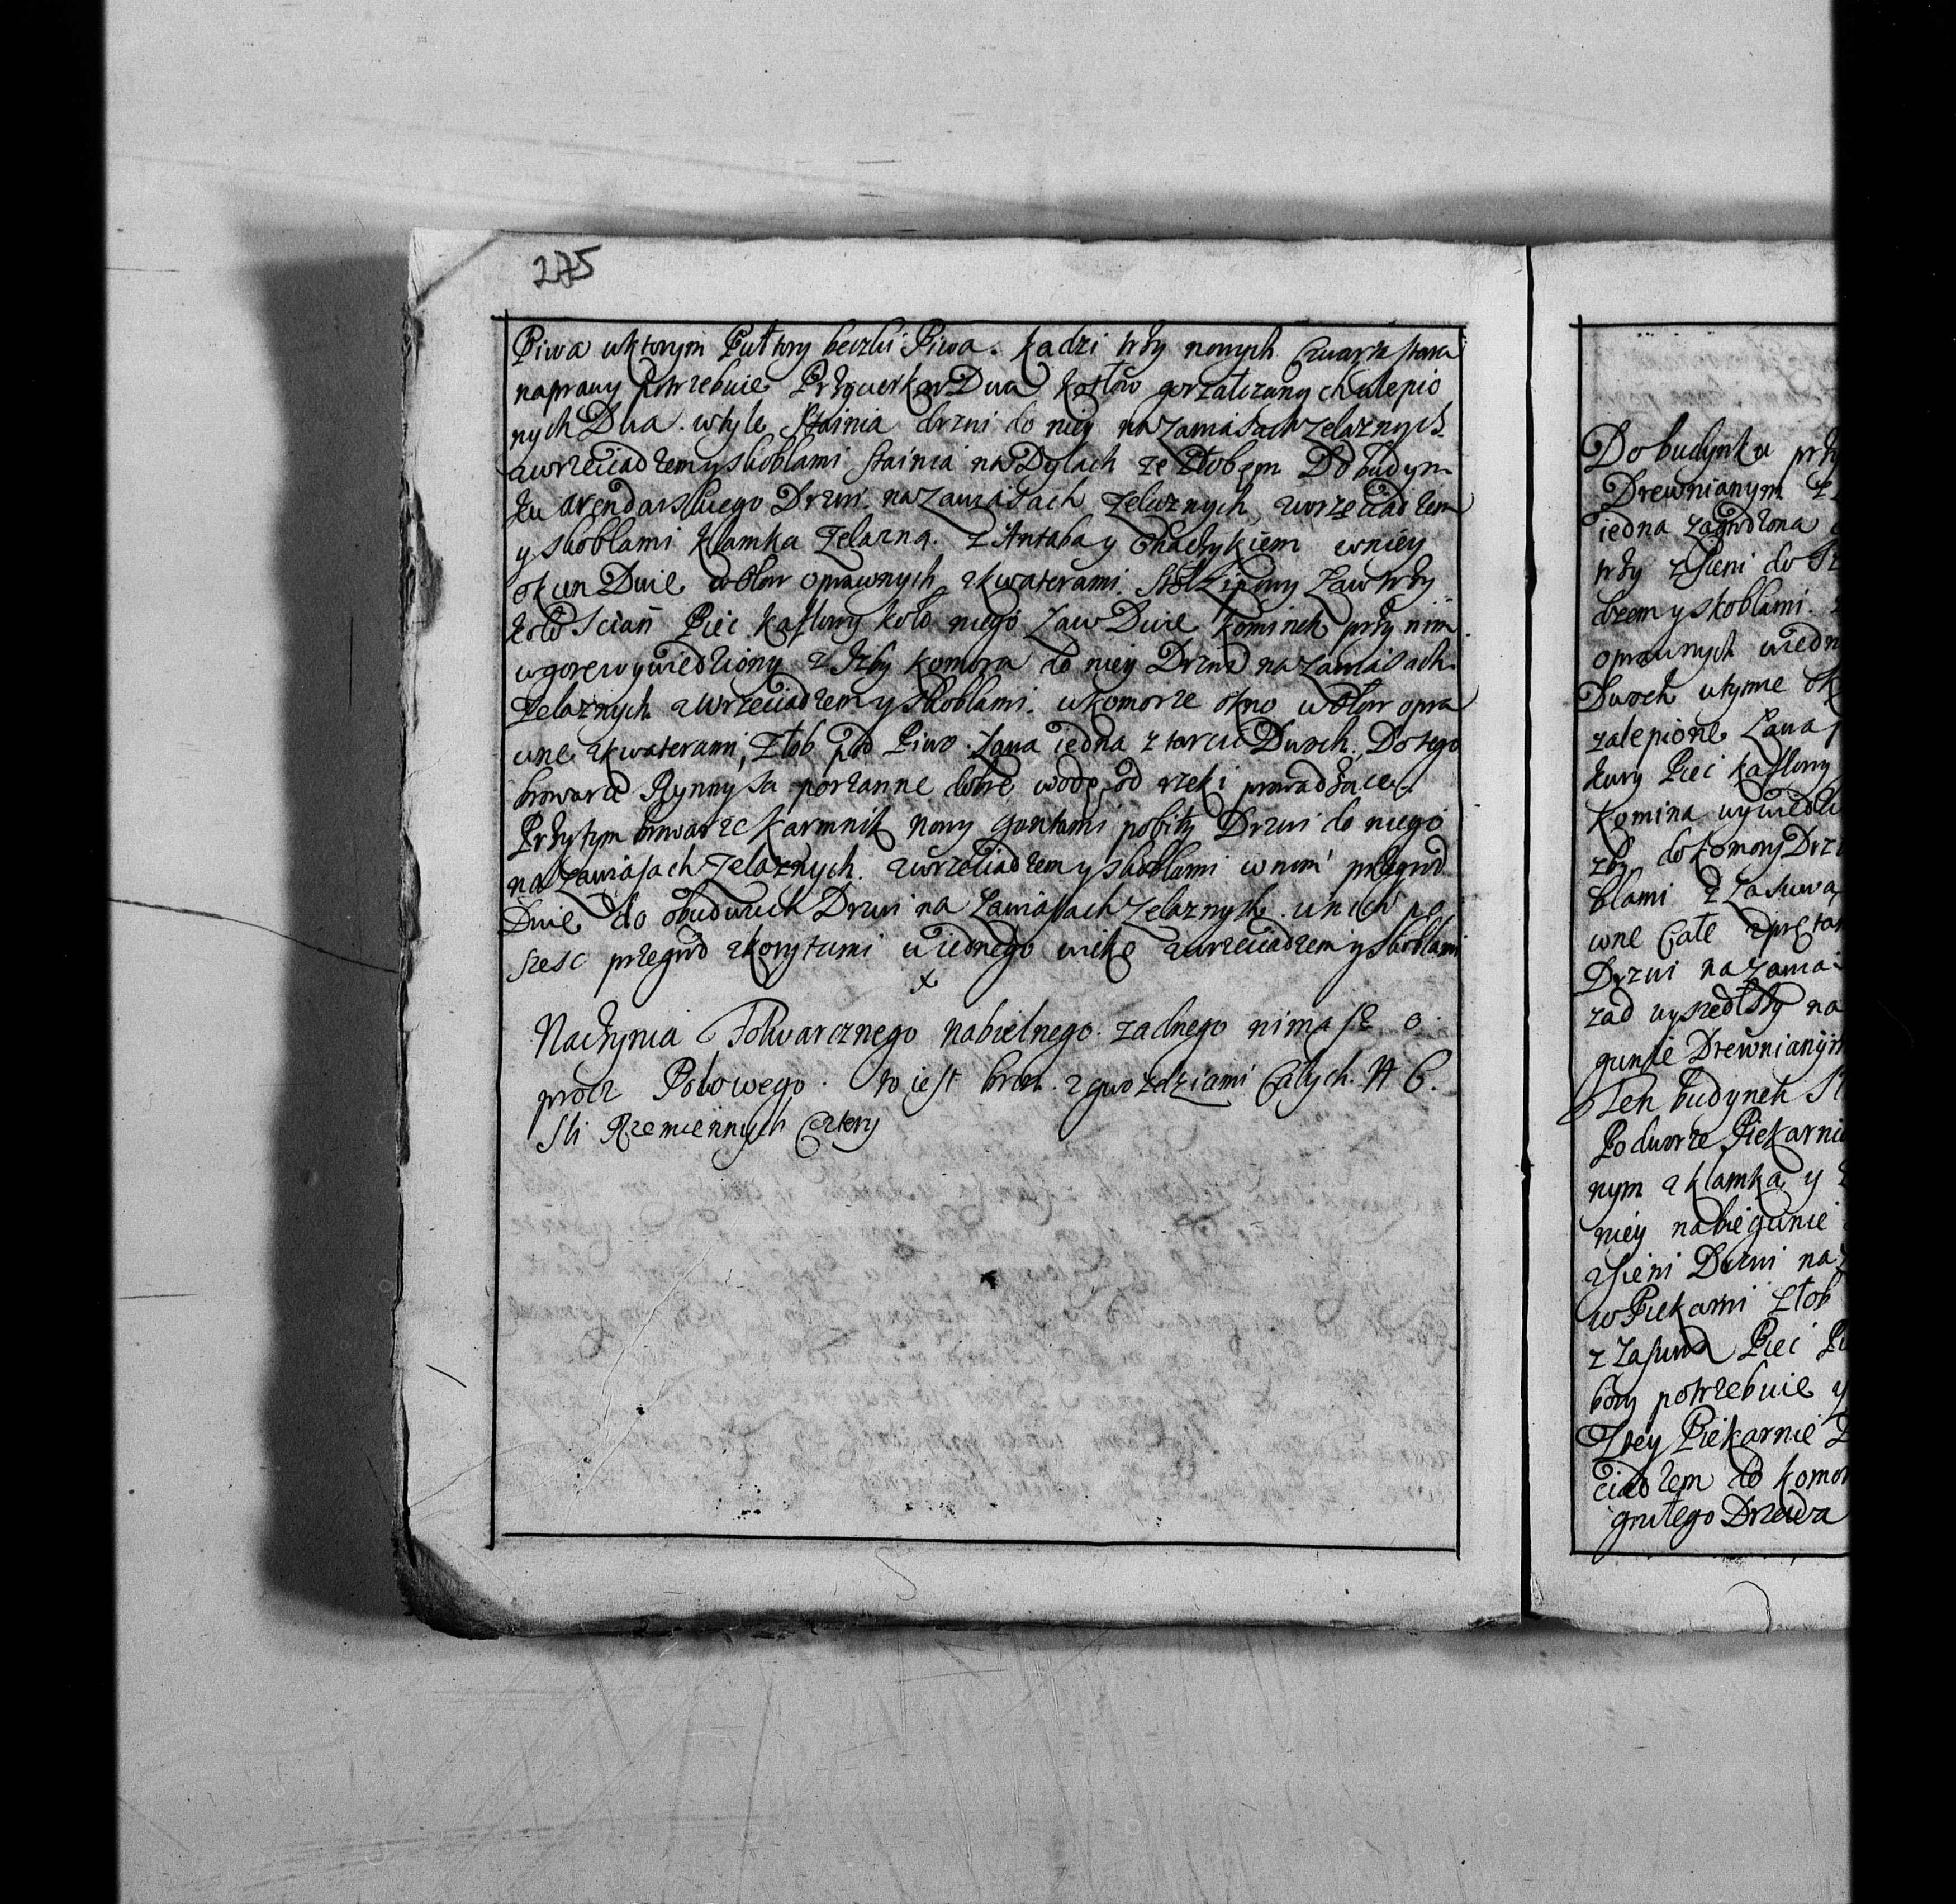 275
Piwa wktorym Pułtory beczki Piwa. kadzi trzy nowych Czwarta stara
naprawy potrzebuie Przycierkow Dwa kotłow gorzałczanych ulepio
nych Dwa. wtyle Stainia drzwi do niey na zawiasach zelaznych
zwrzeciadzem y skoblami stainia na Dylach ze złobem Do budyn
ku arendarskiego Drzwi na zawiasach zelaznych, zwrzeciadzem
y skoblami klamka zelazna. z Antaba y Chaczykiem wniey
okien Dwie wołow oprawnych zkwaterami. Stoł Lipowy Ław trzy
koło scian Piec kaflowy koło niego Ław Dwie kominek przy nim
wgore wywiedziony z Izby komora do niey Drzwi na zawiasach
zelaznych zwrzeciadzem y skoblami. wkomorze okno wołow opra
wne zkwaterami, Złob pod Piwo Ława iedna z tarcic Dwoch. Do tego
browaru Rynny sa porzanne dobre wode od rzeki prowadzace.
Przytym browarze karmnik nowy gontami pobity Drzwi do niego
na zawiasach zelaznych. zwrzeciadzem y skoblami wnim przegrod
Dwie do obudwuch Drzwi na zawiasach zelaznych. wnich po
szesc przegrod zkorytami uiednego wieko zwrzeciadzem y skoblami
x
Naczynia Folwarcznego nabielnego. zadnego nimasz o
procz Polowego. to iest bron. zgwozdziami Całych. N 6.
Sli Rzemiennych Cztery
Do budynku przy
Drewnianym z
iedna zagrodzona
trzy zsieni do Iz
dzem y skoblami.
oprawnych wiedn
Dwoch wtymie ok
zalepione Ława
ktury Piec kaflowy
komina wywiedzi
zby do komory Drzw
blami z zasuwa
wne Całe zpręta
Drzwi na zawia
zad wyszedłszy na
gunie Drewnianym
Ten budynek St
Podworze Piekarnia
nym zklamka y
niey nabiegunie
zsieni Drzwi na z
w Piekarni złob
z zasuwa Piec Pi
bory potrzebuie y
Ztey Piekarnie D
ciadzem do komor
grułego Drzewa